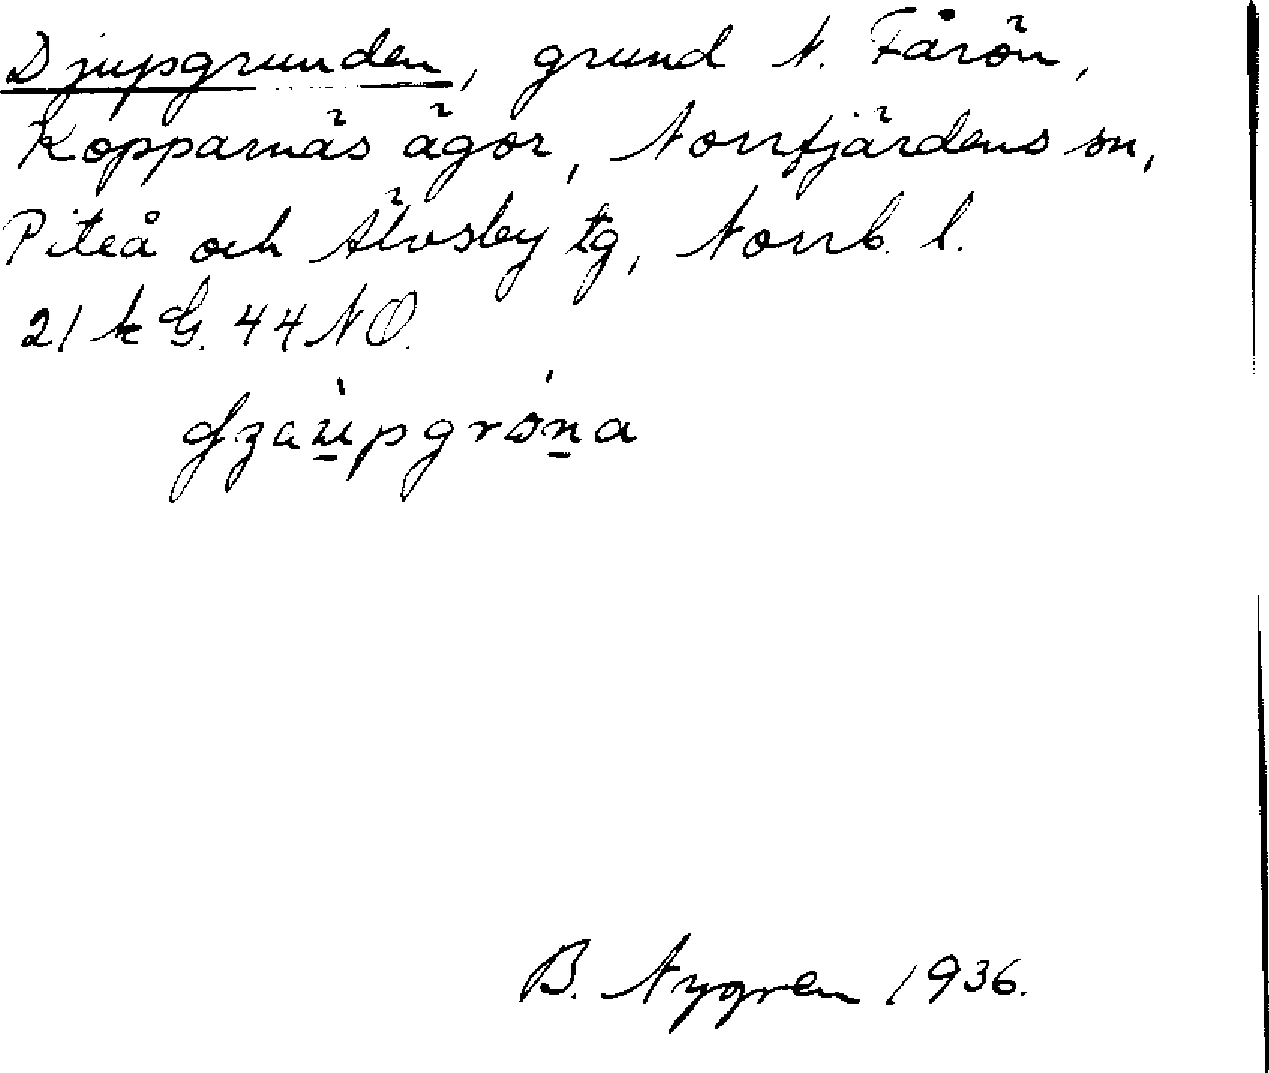 Djupgrunden, grund N. Fårön,
Kopparnäs ägor, Norrfjärdens sn,
Piteå och Älvsby tg, Norrb. l.
21 k G. 44 NO.
B. Nygren 1936.